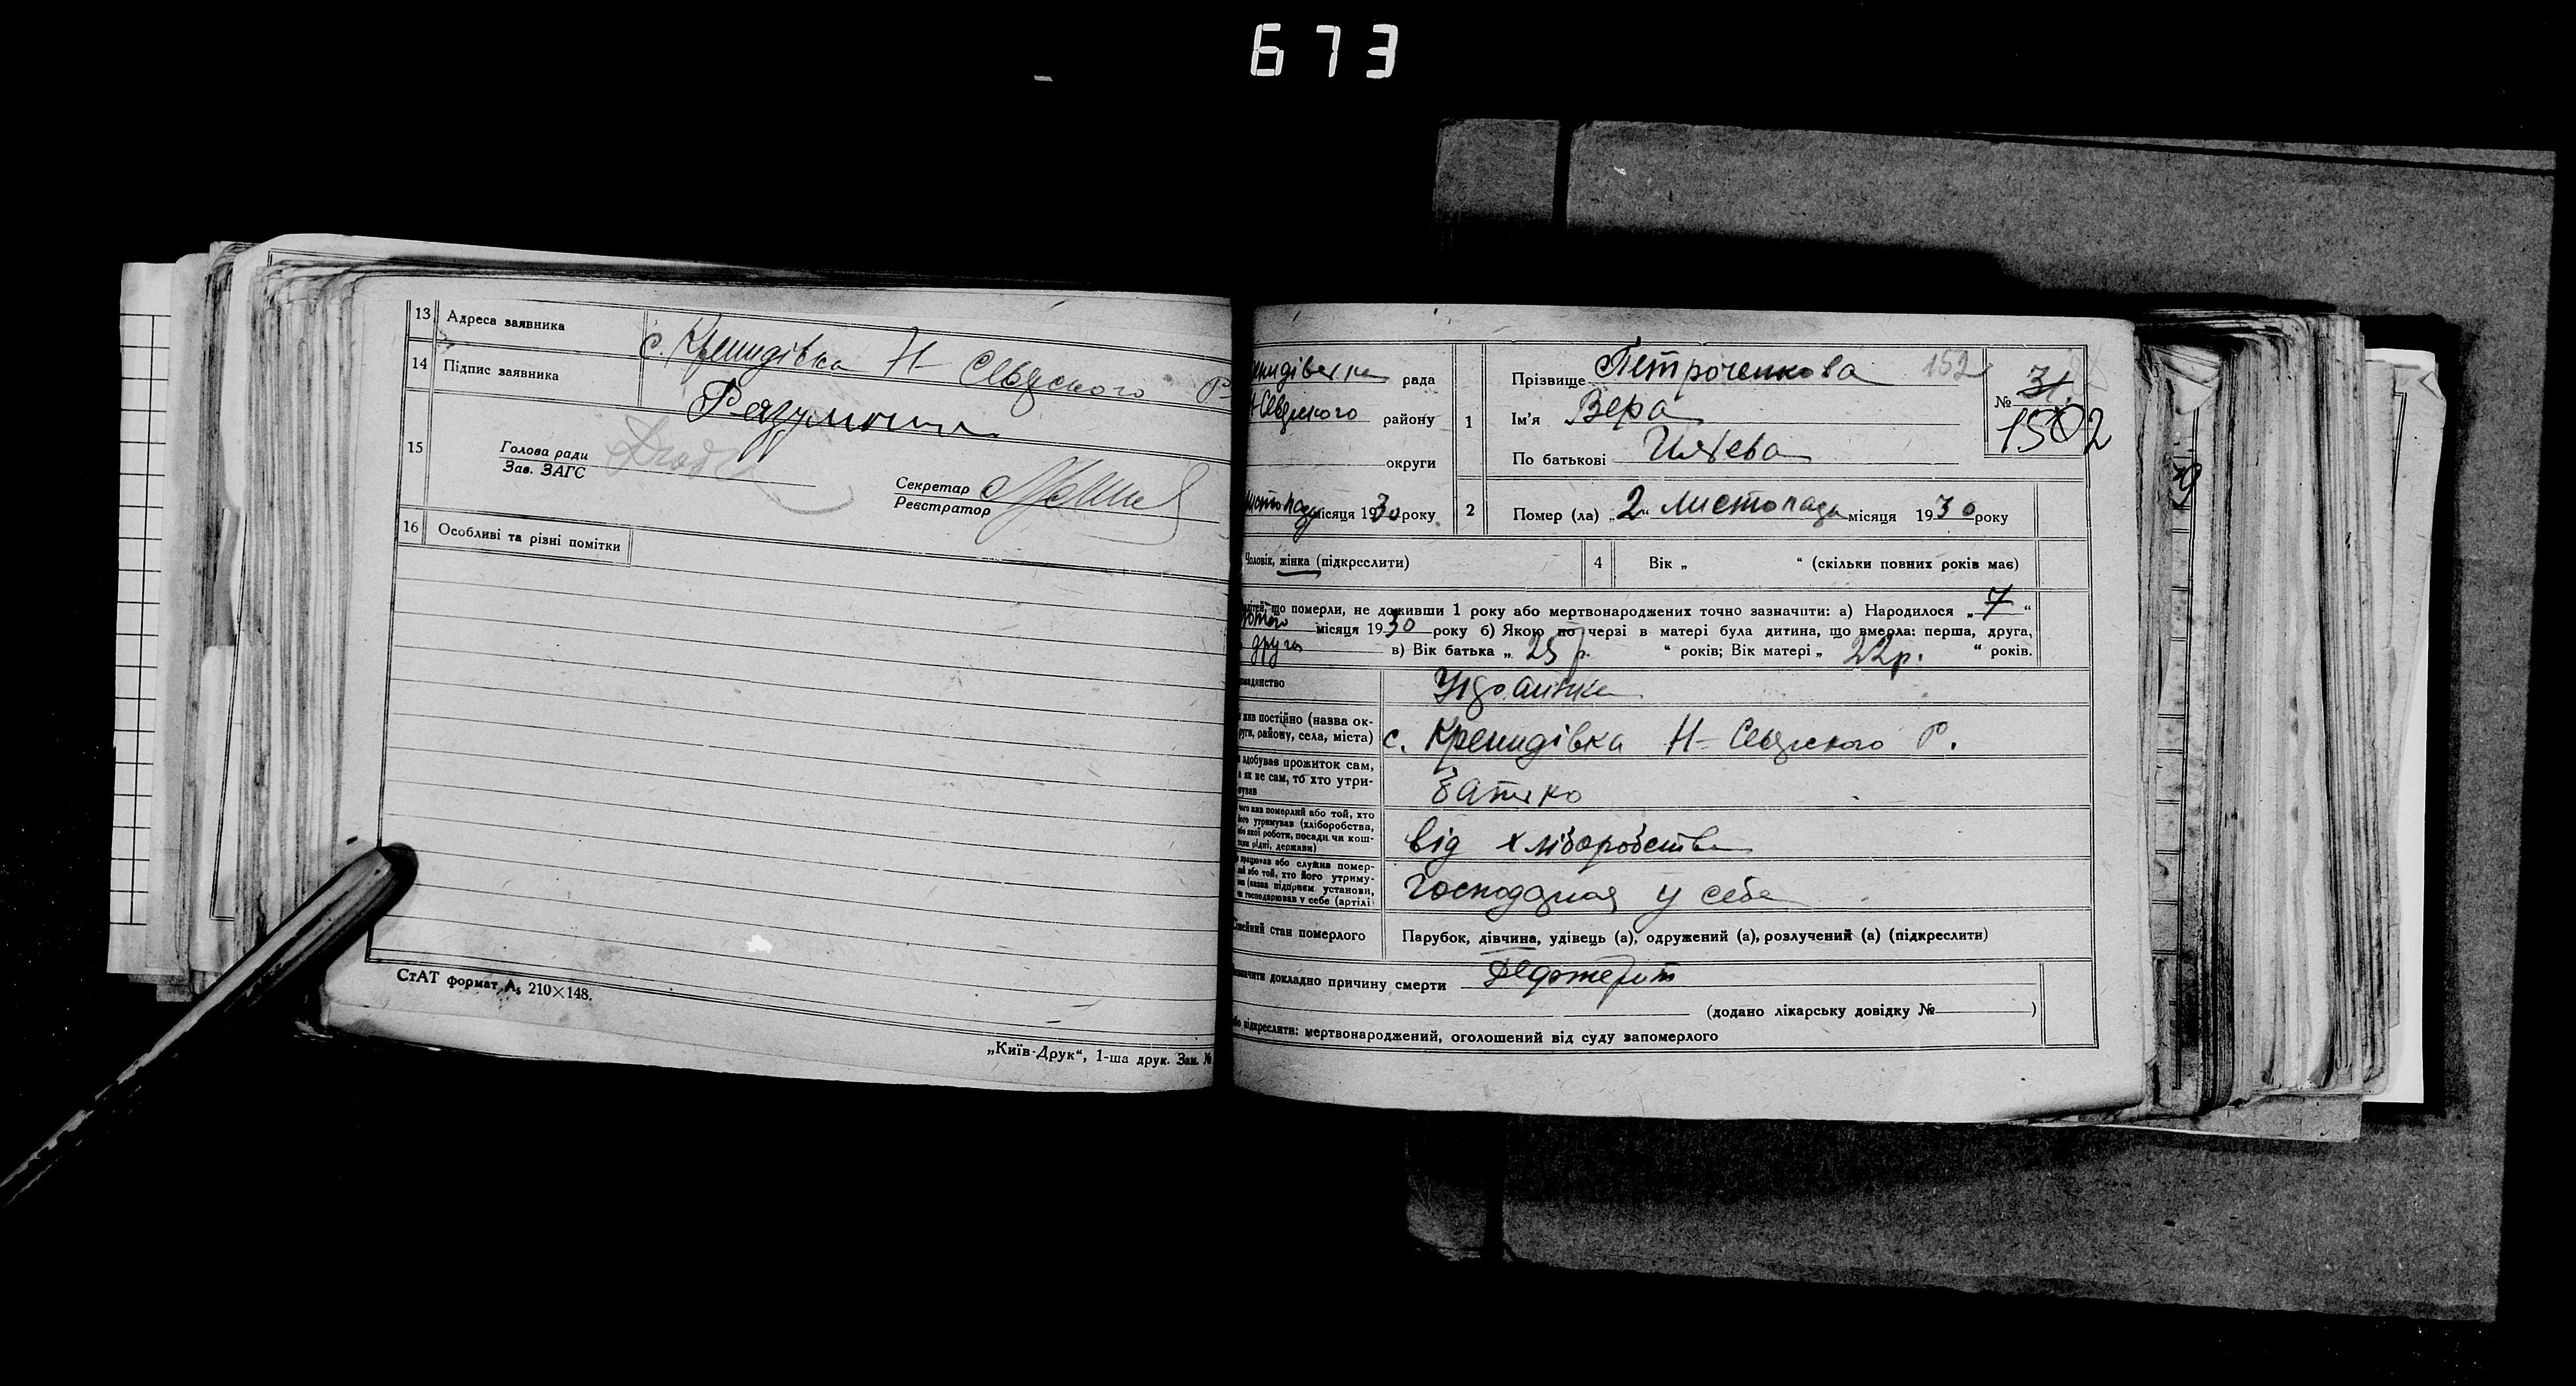 673
13 Адреса заявника с. Кремидівка Н-Севдского Р
14 Підпис заявника
15 Голова ради
Зав. ЗАГС
Секретар
Реєстратор
16 Особливі та різні помітки
СтАТ формат А₅ 210×148.
„Київ-Друк“, 1-ша друк. Зам. №
рада
району
округи
місяця 1930 року
1 Прізвище Петроченкова 152
Ім'я Вера
По батькові
№ 31.
1502
2 Помер (ла) „2“ Листопада місяця 1930 року
Чоловік, жінка (підкреслити)
4 Вік „ “ (скільки повних років має)
що померли, не доживши 1 року або мертвонароджених точно зазначити: а) Народилося „7“
місяця 1930 року б) Якою по черзі в матері була дитина, що вмерла: перша, друга,
друга в) Вік батька „25 р. “ років; Вік матері „ 22р. “ років.
Украинка
жив постійно (назва ок-
руги, району, села, міста) с. Кремидівка Н-Севдского Р.
здобував прожиток сам,
як не сам, то хто утри-
мував Батько
чого жив померлий або той, хто
його утримував (хліборобства,
або якої роботи, посади чи кош-
тами рідні, держави) від хліборобства
працював або служив помер-
лий або той, хто його утриму-
вав (назва підприєм. установи,
чи господарював у себе (артілі) у себе
стан померлого Парубок, дівчина, удівець (а), одружений (а), розлучений (а) (підкреслити)
докладно причину смерти Дефтерит
(додано лікарську довідку № )
підкреслити: мертвонароджений, оголошений від суду запомерлого